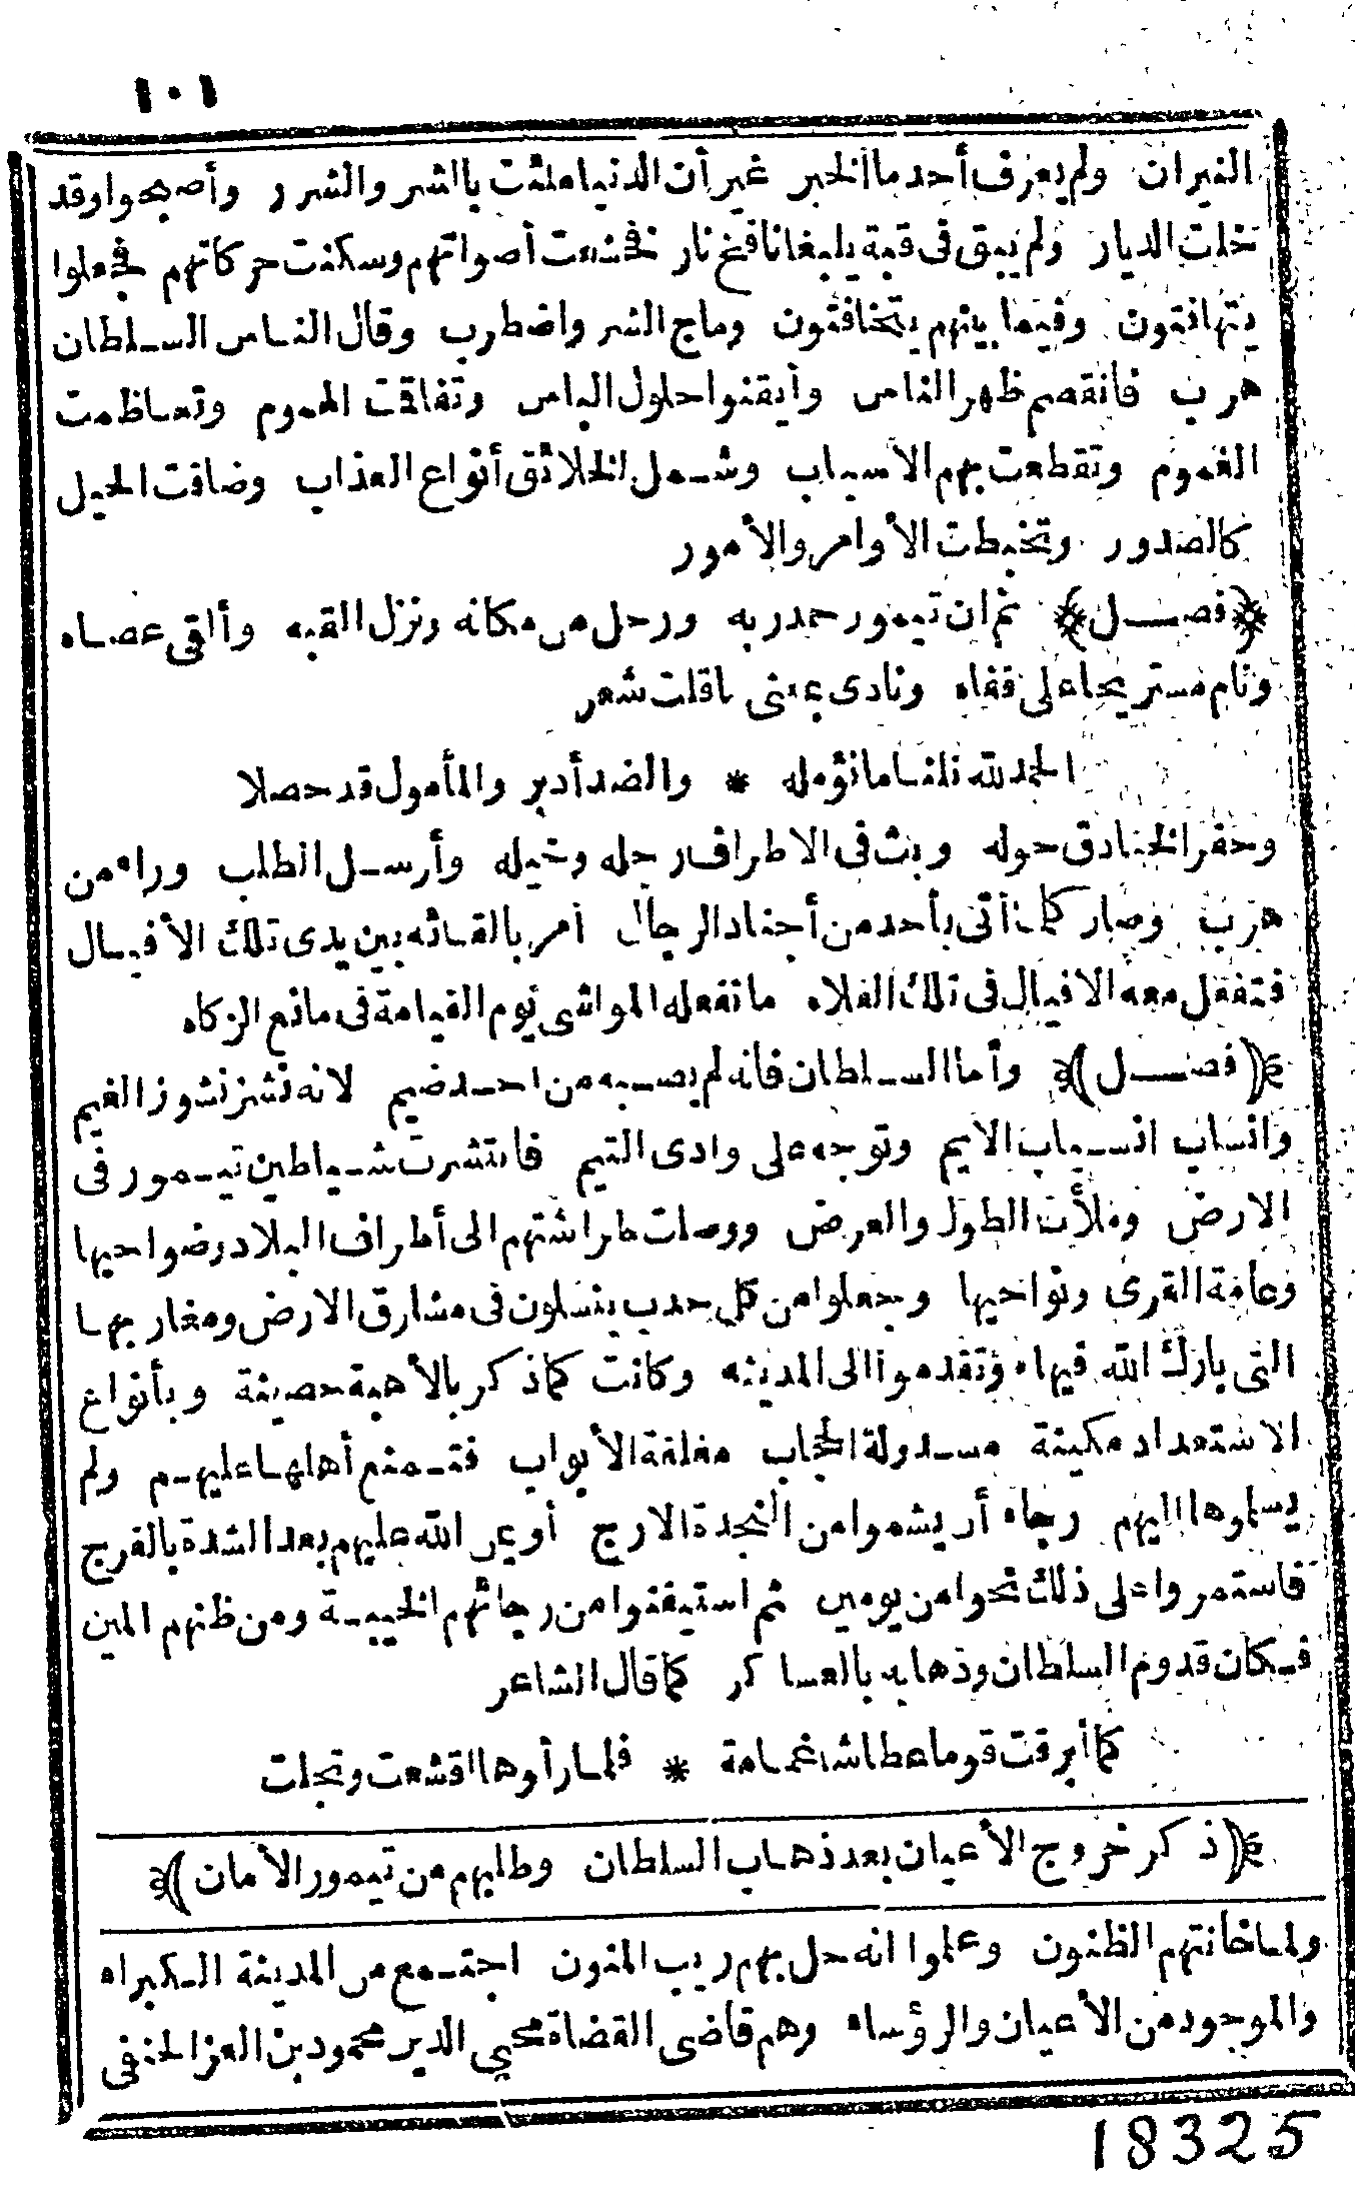 ١٠١
النيران ولم يعرف أحد ما الخبر غير أن الدنيا ملئت بالشر والشرر وأصبحوا وقد
خلت الديار ولم يبق فى قبة يلبغا نافخ نار فخشعت أصواتهم وسكنت حركاتهم فجعلوا
يتهافتون وفيما بينهم يتخافتون وماج الشر واضطرب وقال الناس السلطان
هرب فانقصم ظهر الناس وأيقنوا حلول الباس وتفاقت الهموم وتعاظمت
الغموم وتقطعت بهم الاسباب وشمل الخلائق أنواع العذاب وضاقت الحيل
كالصدور وتخبطت الأوامر والأمور
﴿فصل﴾ ثم ان تيمور حمد ربه ورحل من مكانه ونزل القبه وألقى عصاه
ونام مستريحا على قفاه ونادى بمعنى ما قلت شعر
الحمد لله نلنا ما نؤمله * والضد أدبر والمأمول قد حصلا
وحفر الخنادق حوله وبث فى الاطراف رجله وخيله وأرسل الطلب وراء من
هرب وصار كلما أتى بأحد من أجناد الرجال أمر بالقائه بين يدى تلك الأفيال
فتفعل معه الافيال فى تلك الفلاه ما تفعله المواشى يوم القيامة فى مانع الزكاه
﴿فصل﴾ وأما السلطان فانه لم يصبه من احد ضيم لانه نشز نشوز الغيم
وانساب انسياب الايم وتوجه على وادى التيم فانتشرت شياطين تيمور فى
الارض وملأت الطول والعرض ووصلت طراشتهم الى أطراف البلاد وضواحيها
وعامة القرى ونواحيها وجعلوا من كل حدب ينسلون فى مشارق الارض ومغاربها
التى بارك الله فيها وتقدموا الى المدينه وكانت كما ذكر بالأهبة حصينة وبأنواع
الاستعداد مكينة مسدولة الحجاب مغلقة الأبواب فتمنع أهلها عليهم ولم
يسلموها اليهم رجاء أن يشموا من النجدة الارج أو يمن الله عليهم بعد الشدة بالفرج
فاستمروا على ذلك نحوا من يومين ثم استيقنوا من رجائهم الخيبة ومن ظنهم المين
فكان قدوم السلطان وذهابه بالعساكر كما قال الشاعر
كما أبرقت قوما عطاشا غمامة * فلما رأوها اقشعت وتجلت
﴿ذكر خروج الأعيان بعد ذهاب السلطان وطلبهم من تيمور الأمان﴾
ولما خانتهم الظنون وعلموا انه حل بهم ريب المنون اجتمع من المدينة الكبراء
والموجود من الأعيان والرؤساء وهم قاضى القضاة محيي الدين محمود بن العز الحنفى
18325